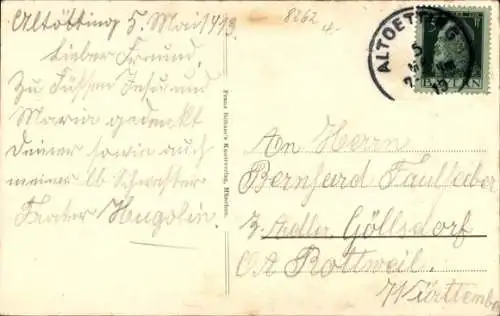 Altötting 5. Mai 1913.
Lieber Freund,
Zu Füssen Jesu und
Maria gedenkt
Deiner sowie auch
meiner lb Schwester
Frater Hugolin.
8262
4.-
ALTOETTING
5
MAI
13
BAYERN
Franz Schnae's Kunstverlag, München.
An Herrn
Bernhard Faulhaber
z. Adler Göllsdorf
O A Rottweil.
Württemberg